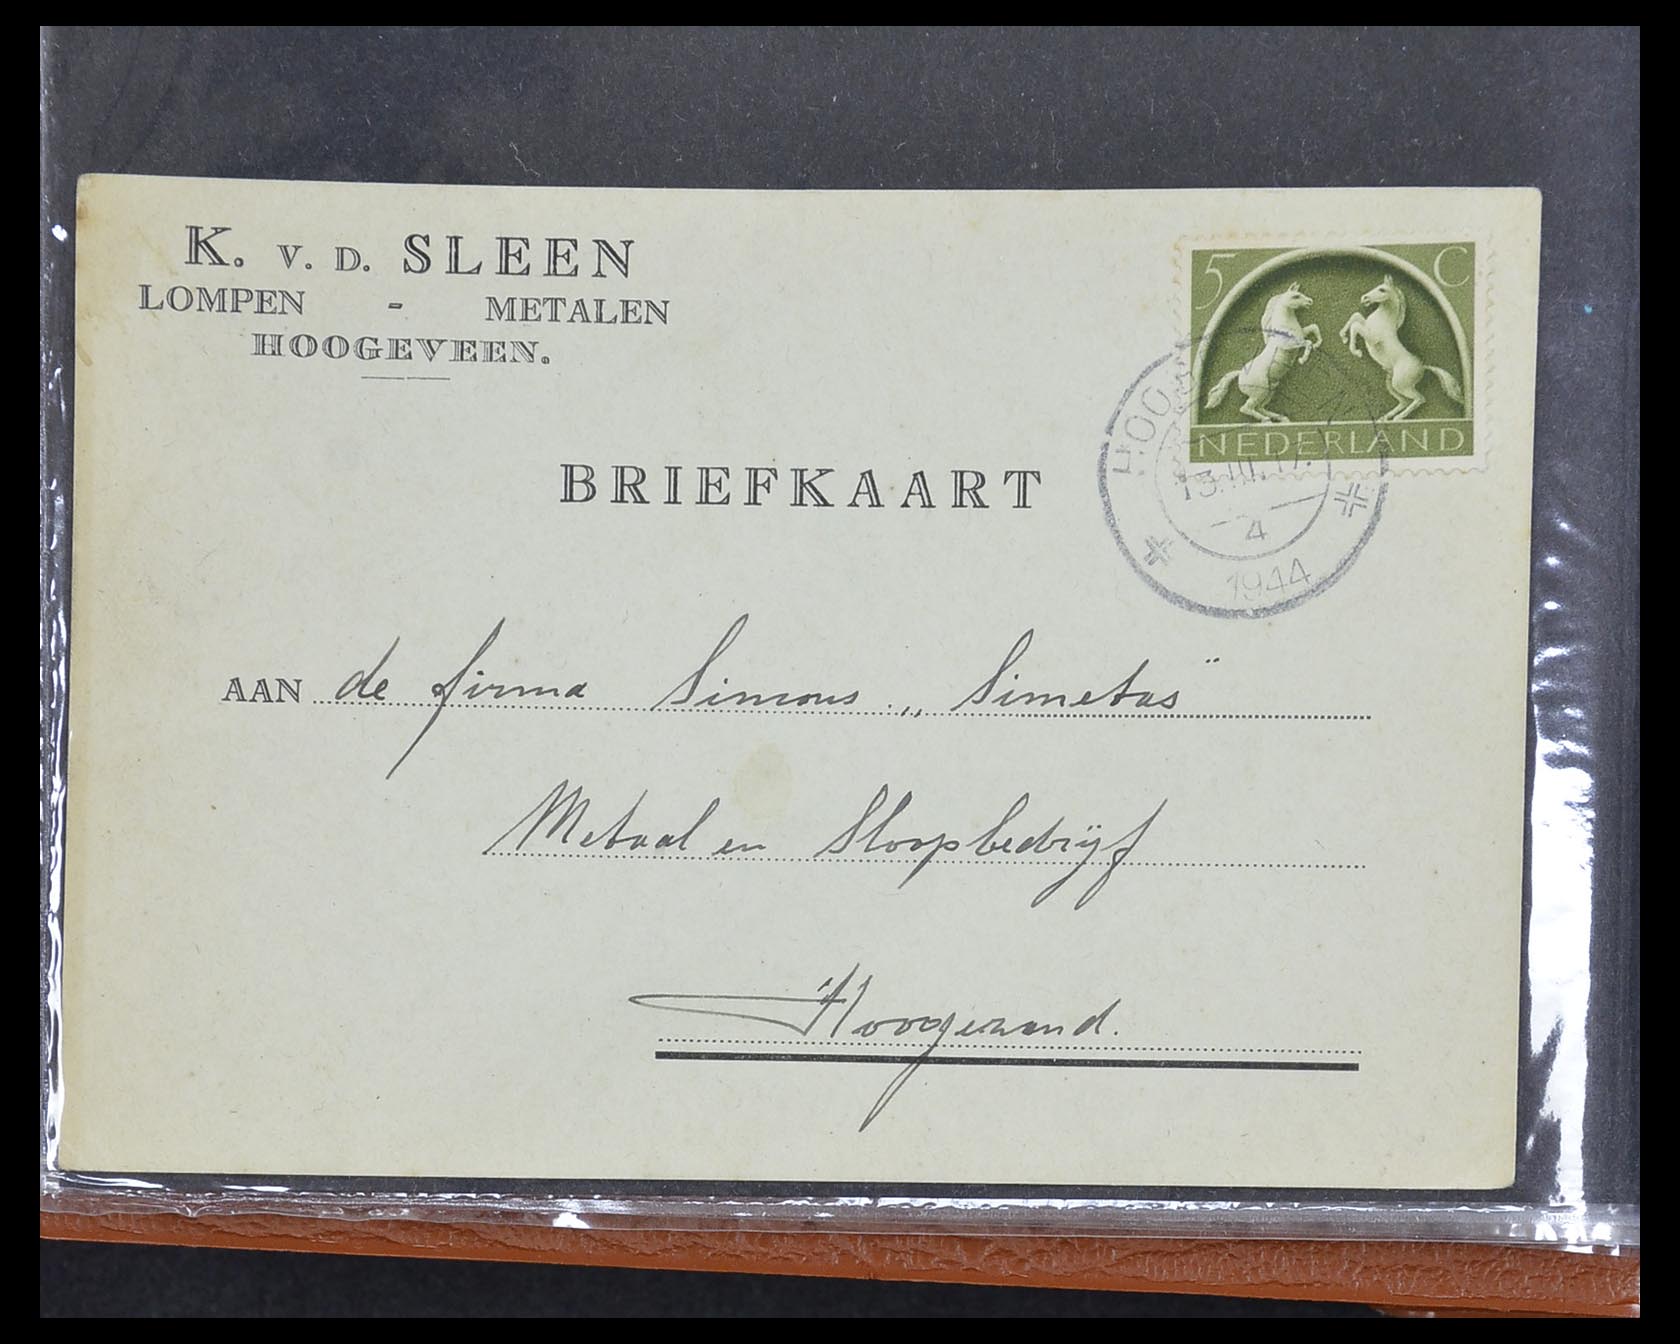 K. V. D. SLEEN
LOMPEN - METALEN
HOOGEVEEN.
5 C
NEDERLAND
13.III.17.
4
1944
BRIEFKAART
AAN de firma Simons „Simetas"
Metaal en Sloopbedrijf
Hoogezand.